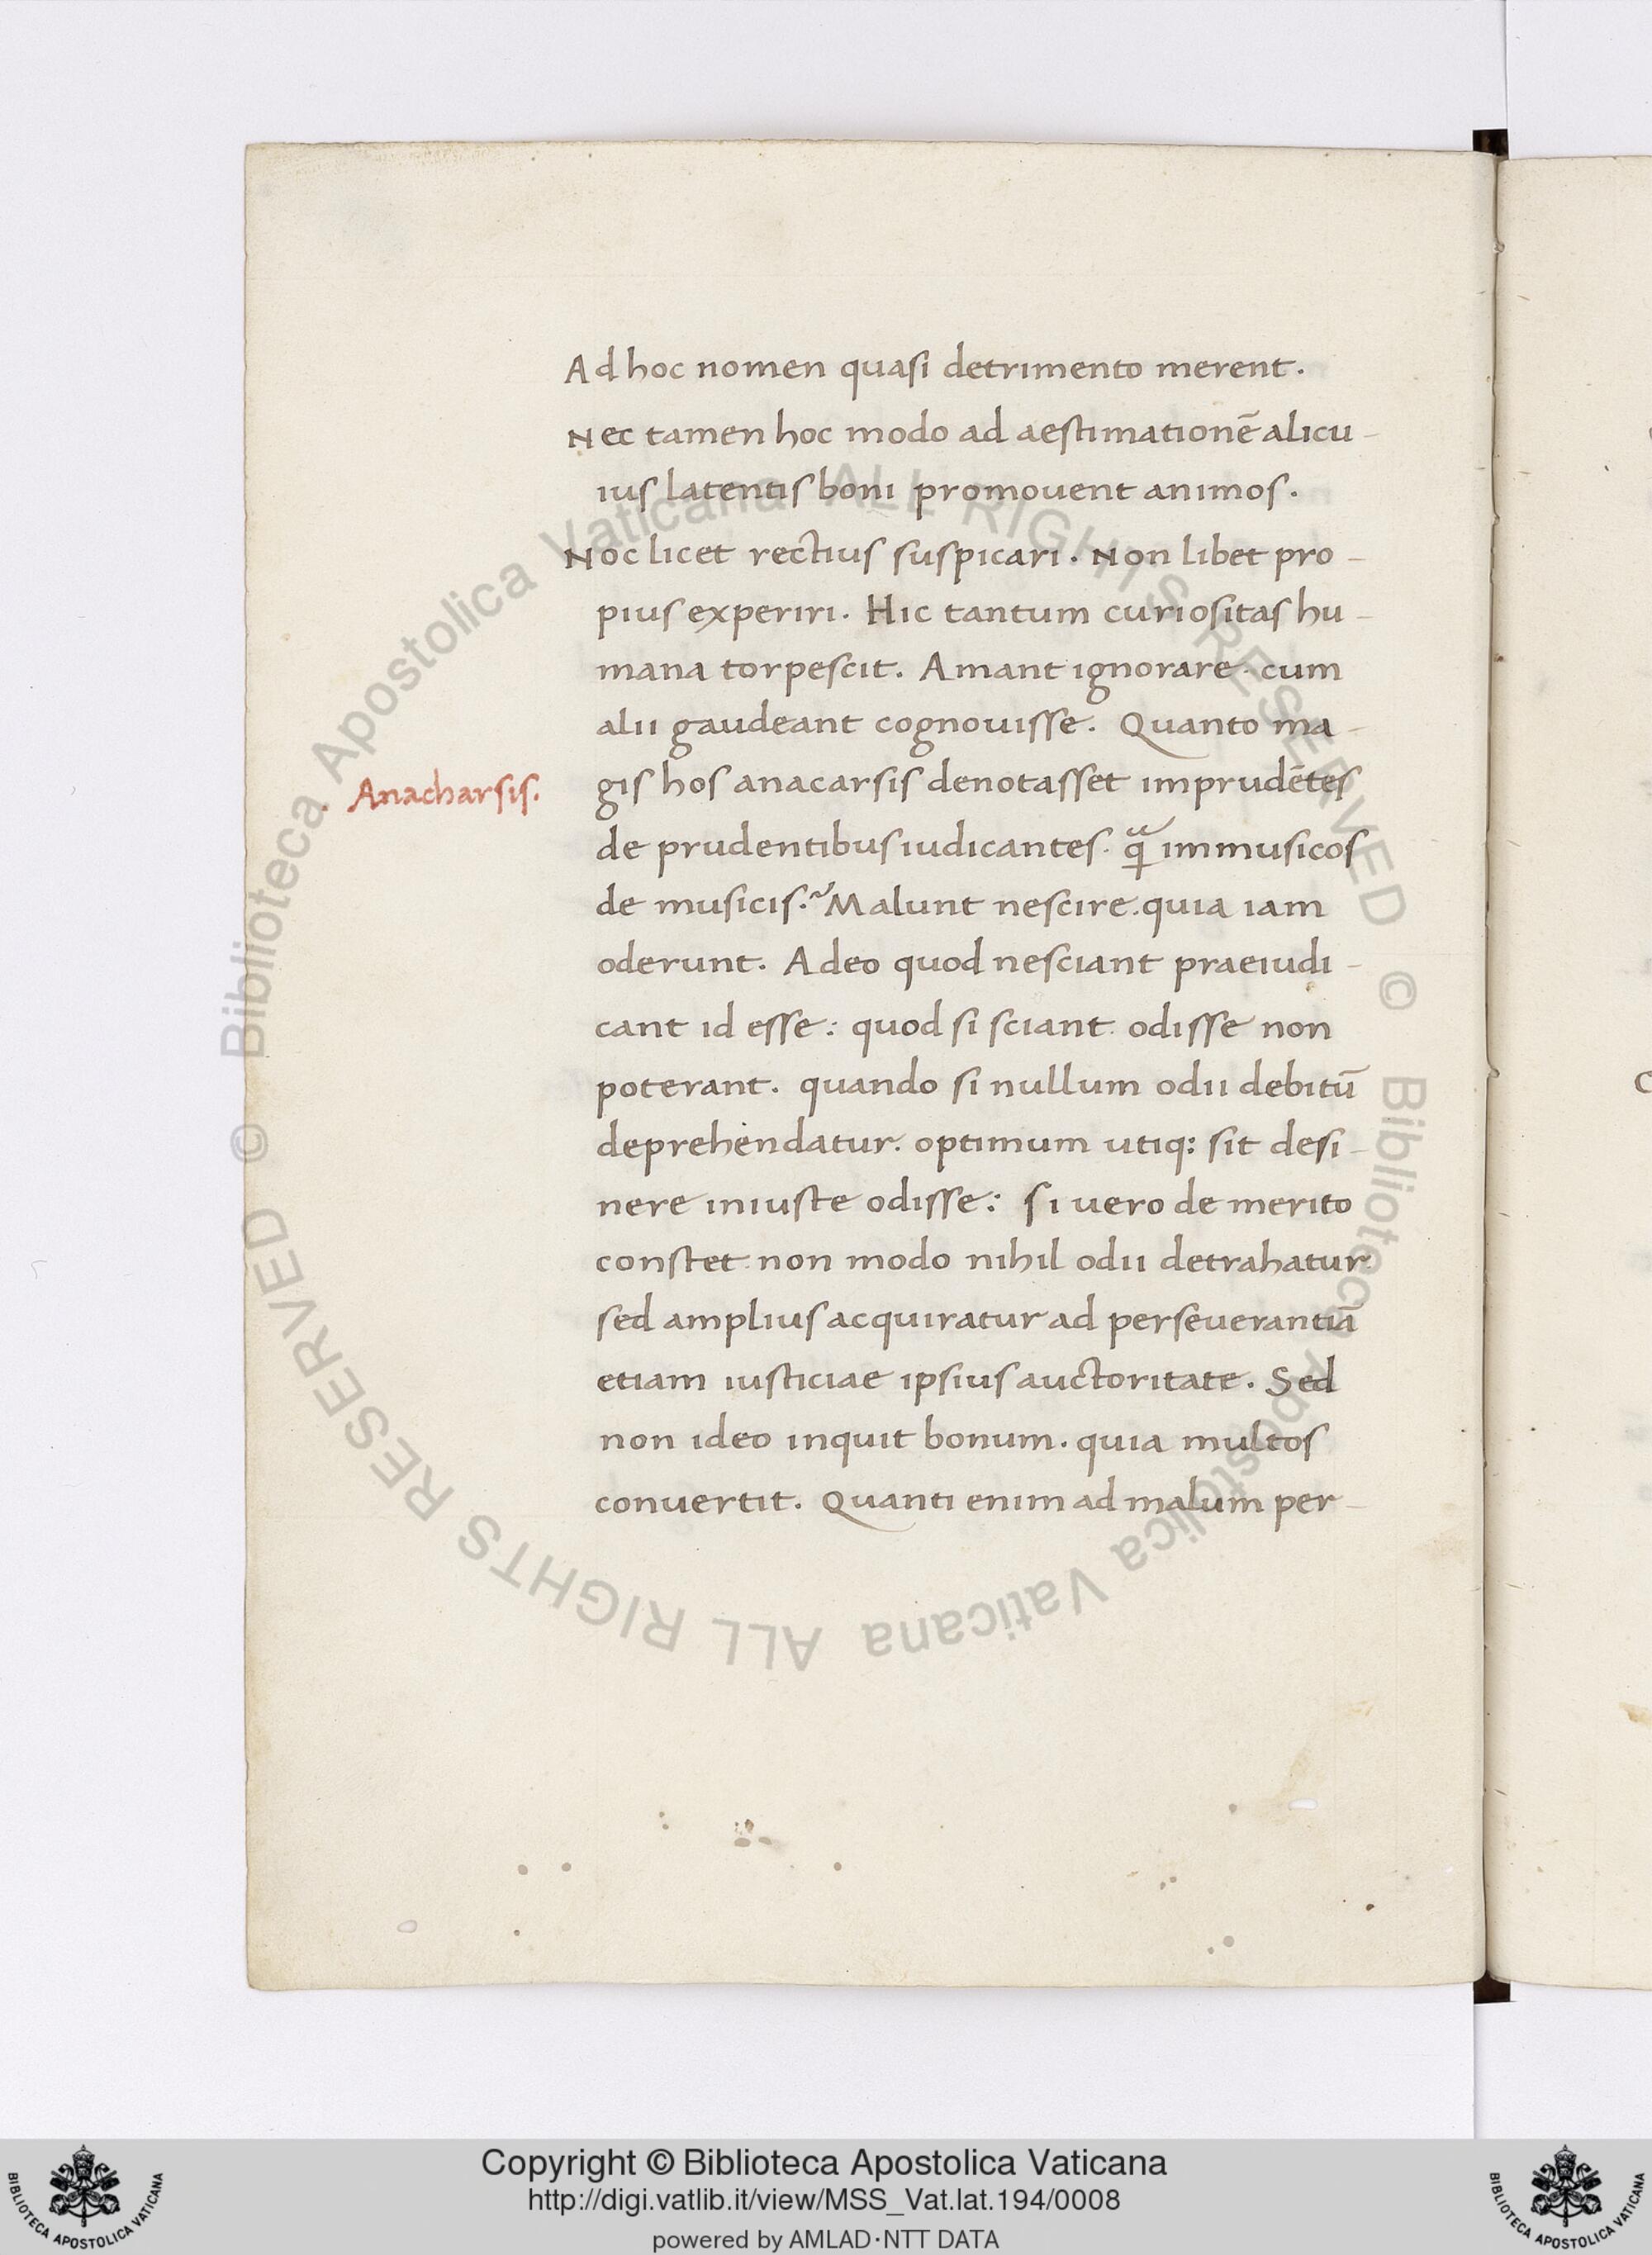 Ad hoc nomen quasi detrimento merent.
Nec tamen hoc modo ad aestimationē alicu-
ius latentis boni promouent animos.
Noc licet rectius suspicari. Non libet pro-
pius experiri. Hic tantum curiositas hu-
mana torpescit. Amant ignorare. cum
alii gaudeant cognouisse. Quanto ma-
Anacharsis.
gis hos anacarsis denotasset imprudētes
de prudentibus iudicantes. qͣ immusicos
de musicis.~Malunt nescire.quia iam
oderunt. Adeo quod nesciant praeiudi-
cant id esse: quod si sciant. odisse non
poterant. quando si nullum odii debitū
deprehendatur. optimum utiq: sit desi-
nere iniuste odisse: si uero de merito
constet. non modo nihil odii detrahatur
sed amplius acquiratur ad perseuerantiā
etiam iusticiae ipsius auctoritate. Sed
non ideo inquit bonum. quia multos
conuertit. Quanti enim ad malum per-
© Biblioteca Apostolica Vaticana ALL RIGHTS RESERVED
© Biblioteca Apostolica Vaticana ALL RIGHTS RESERVED
Copyright © Biblioteca Apostolica Vaticana
http://digi.vatlib.it/view/MSS_Vat.lat.194/0008
powered by AMLAD·NTT DATA
BIBLIOTECA APOSTOLICA VATICANA
BIBLIOTECA APOSTOLICA VATICANA